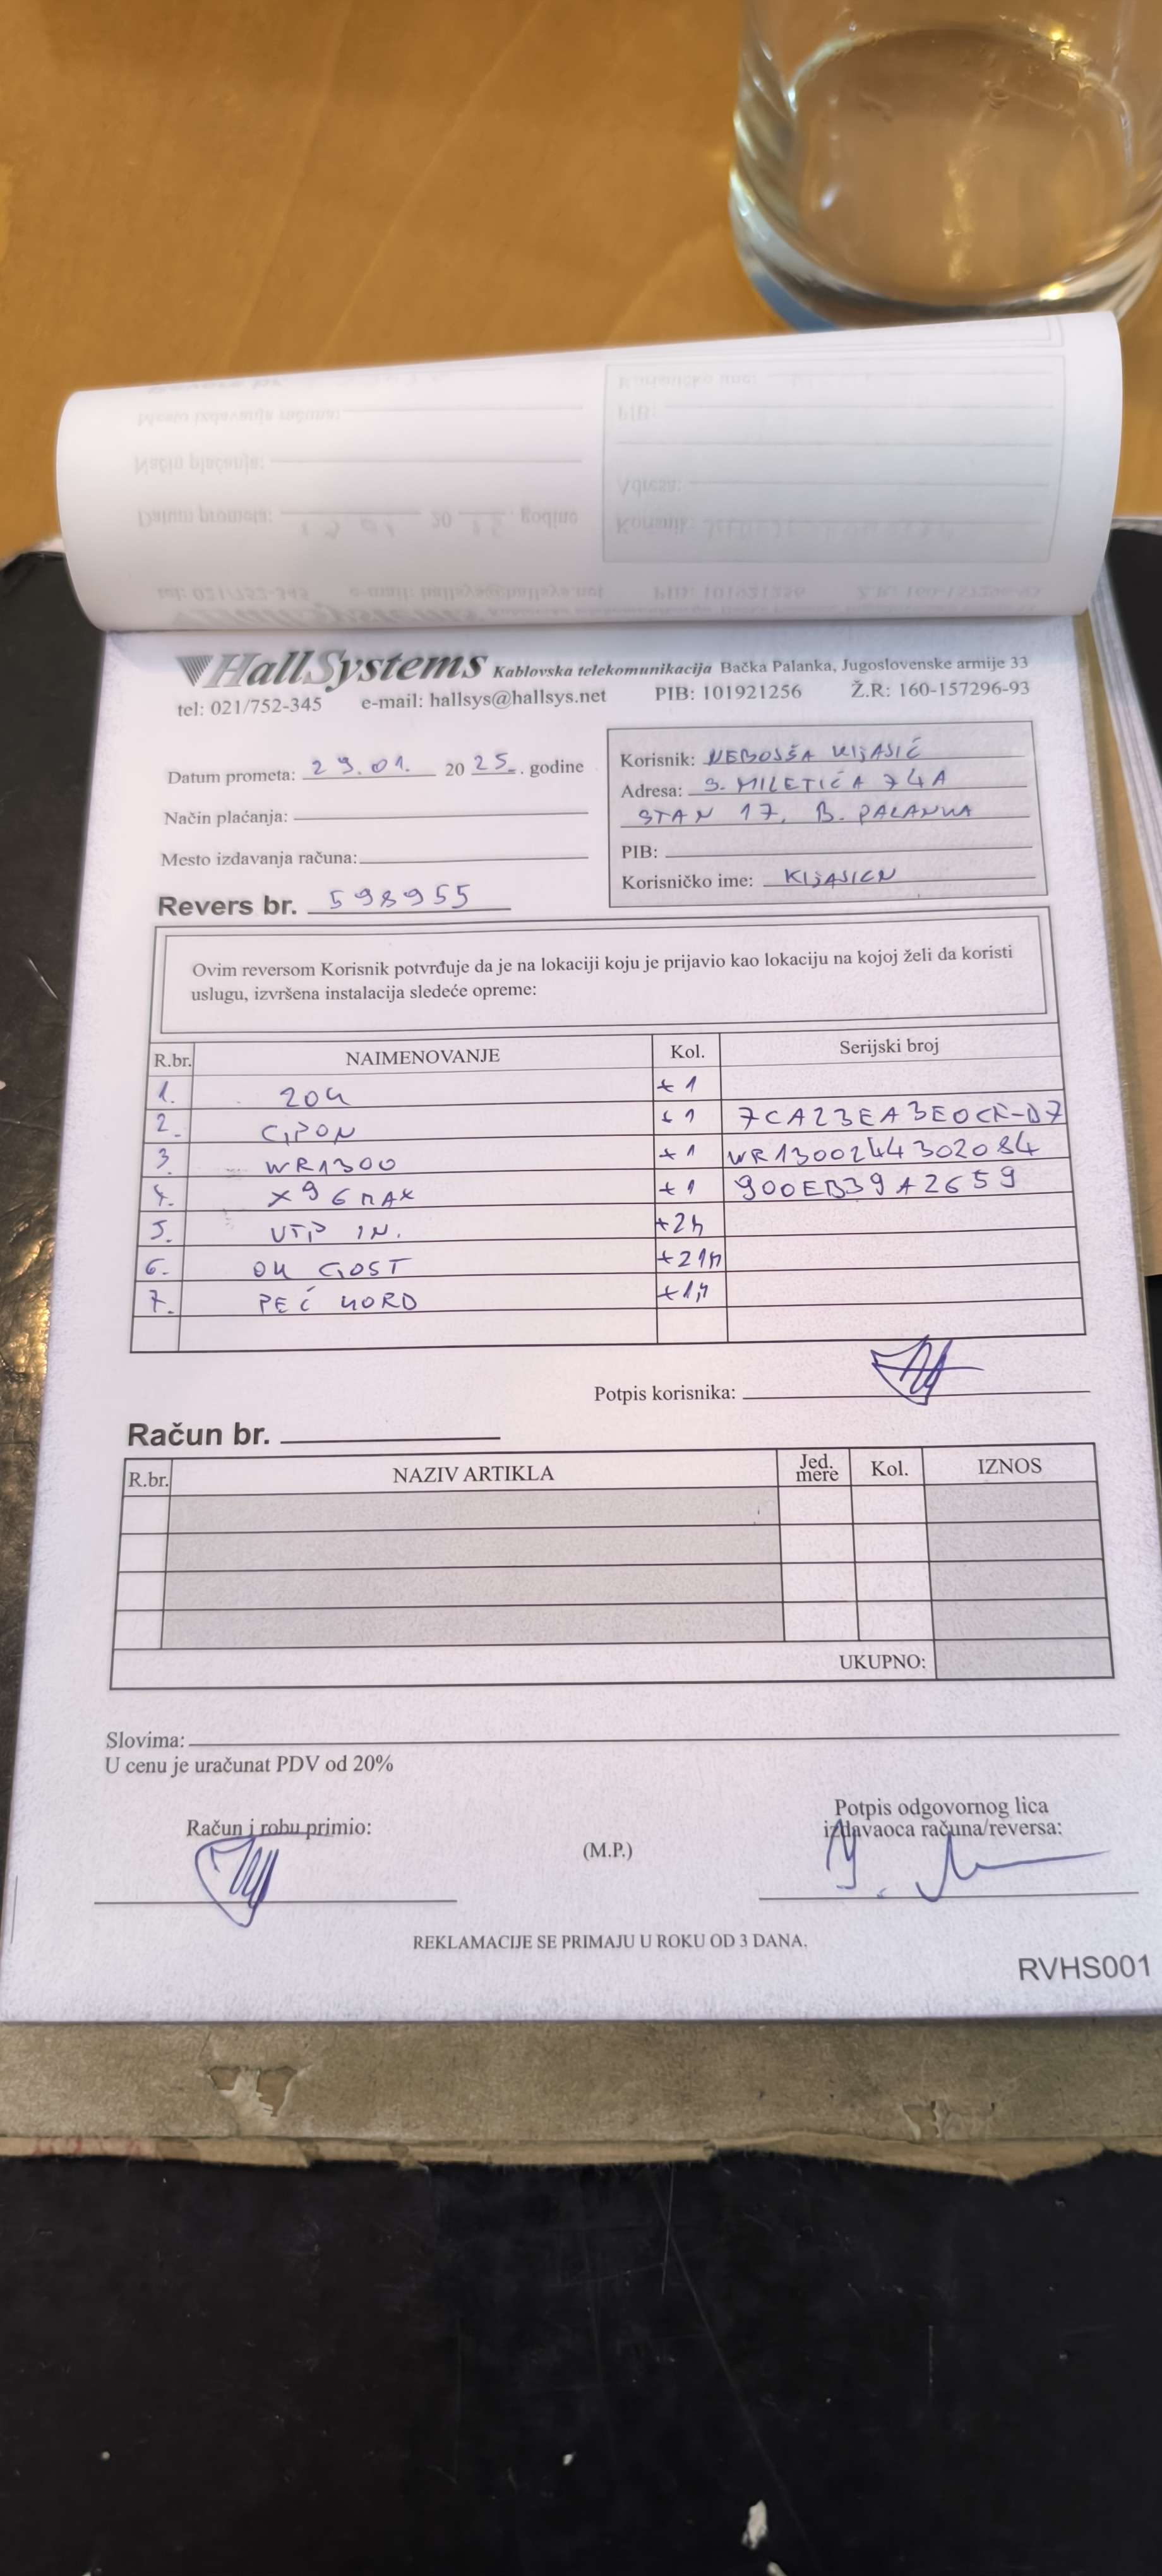 HallSystems Kablovska telekomunikacija Bačka Palanka, Jugoslovenske armije 33
tel: 021/752-345 e-mail: hallsys@hallsys.net PIB: 101921256 Ž.R: 160-157296-93
Datum prometa: 29.01. 20 25. godine
Način plaćanja:
Mesto izdavanja računa:
Revers br. 598955
Korisnik: NEBOJŠA KljASIĆ
Adresa: S. MILETIĆA 74A
STAN 17, B. PALANKA
PIB:
Korisničko ime: KljASICN
Ovim reversom Korisnik potvrđuje da je na lokaciji koju je prijavio kao lokaciju na kojoj želi da koristi
uslugu, izvršena instalacija sledeće opreme:
R.br. NAIMENOVANJE Kol. Serijski broj
1. ZOK +1
2. GPON +1 7CA23EA3E0CF-D7
3. WR1300 +1 WR1300244302084
4. X96MAX +1 900EB39A2659
5. UTP IN. +2h
6. OK GOST +21h
7. PEČ KORD +1h
Potpis korisnika:
Račun br.
R.br. NAZIV ARTIKLA Jed. mere Kol. IZNOS
UKUPNO:
Slovima:
U cenu je uračunat PDV od 20%
Račun i robu primio:
(M.P.)
Potpis odgovornog lica
izdavaoca računa/reversa:
REKLAMACIJE SE PRIMAJU U ROKU OD 3 DANA.
RVHS001